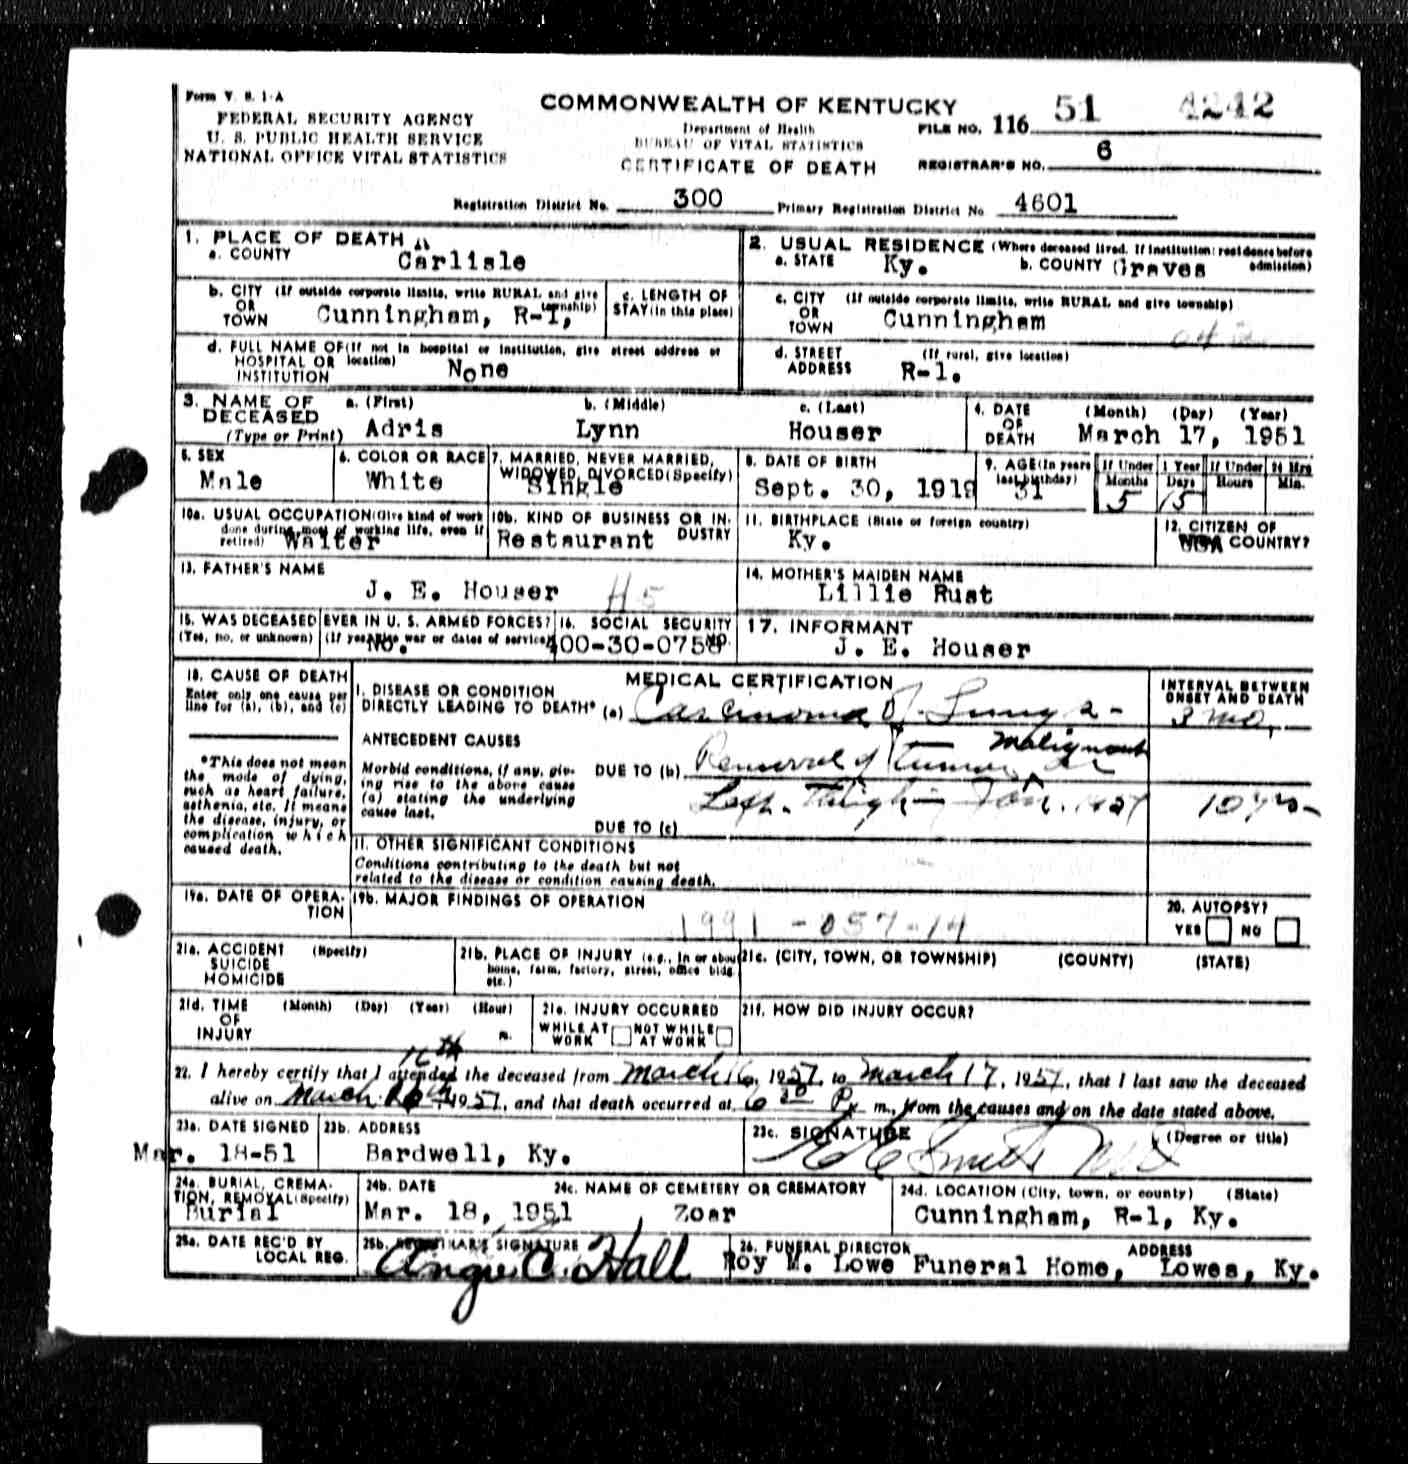 Form V. S. 1-A
FEDERAL SECURITY AGENCY
U. S. PUBLIC HEALTH SERVICE
NATIONAL OFFICE VITAL STATISTICS
COMMONWEALTH OF KENTUCKY
Department of Health
BUREAU OF VITAL STATISTICS
CERTIFICATE OF DEATH
FILE NO. 116 51 4242
REGISTRAR'S NO. 6
Registration District No. 300 Primary Registration District No 4601
1. PLACE OF DEATH
a. COUNTY Carlisle
2. USUAL RESIDENCE (Where deceased lived. If institution: residence before admission)
a. STATE Ky. b. COUNTY Graves
b. CITY (If outside corporate limits, write RURAL and give township) OR TOWN Cunningham, R-1,
c. LENGTH OF STAY (in this place)
c. CITY (If outside corporate limits, write RURAL and give township) OR TOWN Cunningham
d. FULL NAME OF (If not in hospital or institution, give street address or location) HOSPITAL OR INSTITUTION None
d. STREET ADDRESS (If rural, give location) R-1.
3. NAME OF DECEASED (Type or Print)
a. (First) Adris b. (Middle) Lynn c. (Last) Houser
4. DATE OF DEATH (Month) (Day) (Year) March 17, 1951
5. SEX Male
6. COLOR OR RACE White
7. MARRIED, NEVER MARRIED, WIDOWED, DIVORCED (Specify) Single
8. DATE OF BIRTH Sept. 30, 1919
9. AGE (In years last birthday) 31
If Under 1 Year Months 5 Days 15
If Under 24 Hrs Hours Min.
10a. USUAL OCCUPATION (Give kind of work done during most of working life, even if retired) Waiter
10b. KIND OF BUSINESS OR INDUSTRY Restaurant
11. BIRTHPLACE (State or foreign country) Ky.
12. CITIZEN OF COUNTRY? USA
13. FATHER'S NAME J. E. Houser H5
14. MOTHER'S MAIDEN NAME Lillie Rust
15. WAS DECEASED EVER IN U. S. ARMED FORCES? (Yes, no, or unknown) (If yes, give war or dates of service) No.
16. SOCIAL SECURITY NO. 400-30-0758
17. INFORMANT J. E. Houser
18. CAUSE OF DEATH
Enter only one cause per line for (a), (b), and (c)
*This does not mean the mode of dying, such as heart failure, asthenia, etc. It means the disease, injury, or complication which caused death.
MEDICAL CERTIFICATION
INTERVAL BETWEEN ONSET AND DEATH
I. DISEASE OR CONDITION DIRECTLY LEADING TO DEATH* (a) Carcinoma of Lungs 3 mo,
ANTECEDENT CAUSES
Morbid conditions, if any, giving rise to the above cause (a) stating the underlying cause last.
DUE TO (b) Removal of malignant tumor
Left Thigh Jan.
DUE TO (c)
II. OTHER SIGNIFICANT CONDITIONS
Conditions contributing to the death but not related to the disease or condition causing death.
19a. DATE OF OPERATION
19b. MAJOR FINDINGS OF OPERATION
1991 - 057-14
20. AUTOPSY?
YES NO
21a. ACCIDENT SUICIDE HOMICIDE (Specify)
21b. PLACE OF INJURY (e.g., in or about home, farm, factory, street, office bldg. etc.)
21c. (CITY, TOWN, OR TOWNSHIP) (COUNTY) (STATE)
21d. TIME OF INJURY (Month) (Day) (Year) (Hour) m.
21e. INJURY OCCURRED
WHILE AT WORK NOT WHILE AT WORK
21f. HOW DID INJURY OCCUR?
16th
22. I hereby certify that I attended the deceased from March 16, 1951, to March 17, 1951, that I last saw the deceased
alive on March 16th, 1951, and that death occurred at 6 30 P. m., from the causes and on the date stated above.
23a. DATE SIGNED Mar. 18-51
23b. ADDRESS Bardwell, Ky.
23c. SIGNATURE (Degree or title) Smith MD
24a. BURIAL, CREMATION, REMOVAL (Specify) Burial
24b. DATE Mar. 18, 1951
24c. NAME OF CEMETERY OR CREMATORY Zoar
24d. LOCATION (City, town, or county) (State) Cunningham, R-1, Ky.
25a. DATE REC'D BY LOCAL REG.
25b. REGISTRAR'S SIGNATURE Angie C. Hall
26. FUNERAL DIRECTOR ADDRESS
Roy M. Lowe Funeral Home, Lowes, Ky.